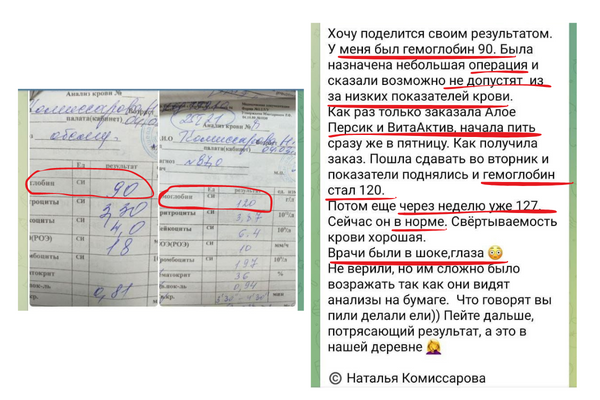 Анализ крови №
Комиссарова
палата(кабинет)
общему.
Ед
результат
глобин
СИ
90
троциты
СИ
3,30
коциты
СИ
4,0
(РОЭ)
СИ
18
мбоциты
СИ
атокрит
ок-ль
0,81
кр.
Анализ крови №
Комиссарова Н.
палата(кабинет)
Ед
результат
емоглобин
СИ
120
ритроциты
СИ
3,37
10¹²/л
ейкоциты
СИ
6.4
10⁹/л
ОЭ(РОЭ)
СИ
10
мм/ч
ромбоциты
СИ
197
10⁹/л
ематокрит
36
%
0,94
мин
Хочу поделится своим результатом.
У меня был гемоглобин 90. Была
назначена небольшая операция и
сказали возможно не допустят из
за низких показателей крови.
Как раз только заказала Алое
Персик и ВитаАктив, начала пить
сразу же в пятницу. Как получила
заказ. Пошла сдавать во вторник и
показатели поднялись и гемоглобин
стал 120.
Потом еще через неделю уже 127.
Сейчас он в норме. Свёртываемость
крови хорошая.
Врачи были в шоке,глаза 😳
Не верили, но им сложно было
возражать так как они видят
анализы на бумаге. Что говорят вы
пили делали ели)) Пейте дальше,
потрясающий результат, а это в
нашей деревне 🤦‍♀️
© Наталья Комиссарова